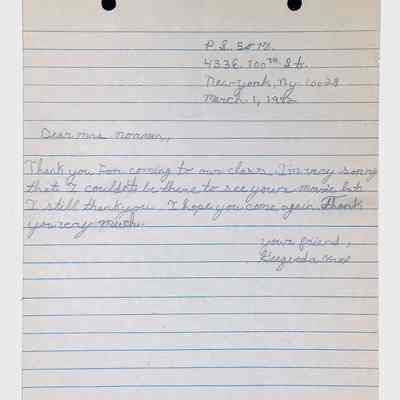 P.S. 50 M.
433 E. 100TH St.
New York, Ny 10029
March 1, 1972
Dear Mrs.
Thank you For coming to our class. I'm very sorry
that I couldn't be there to see your movie but
I still thank you. I hope you come again. Thank
you very much.
your friend,